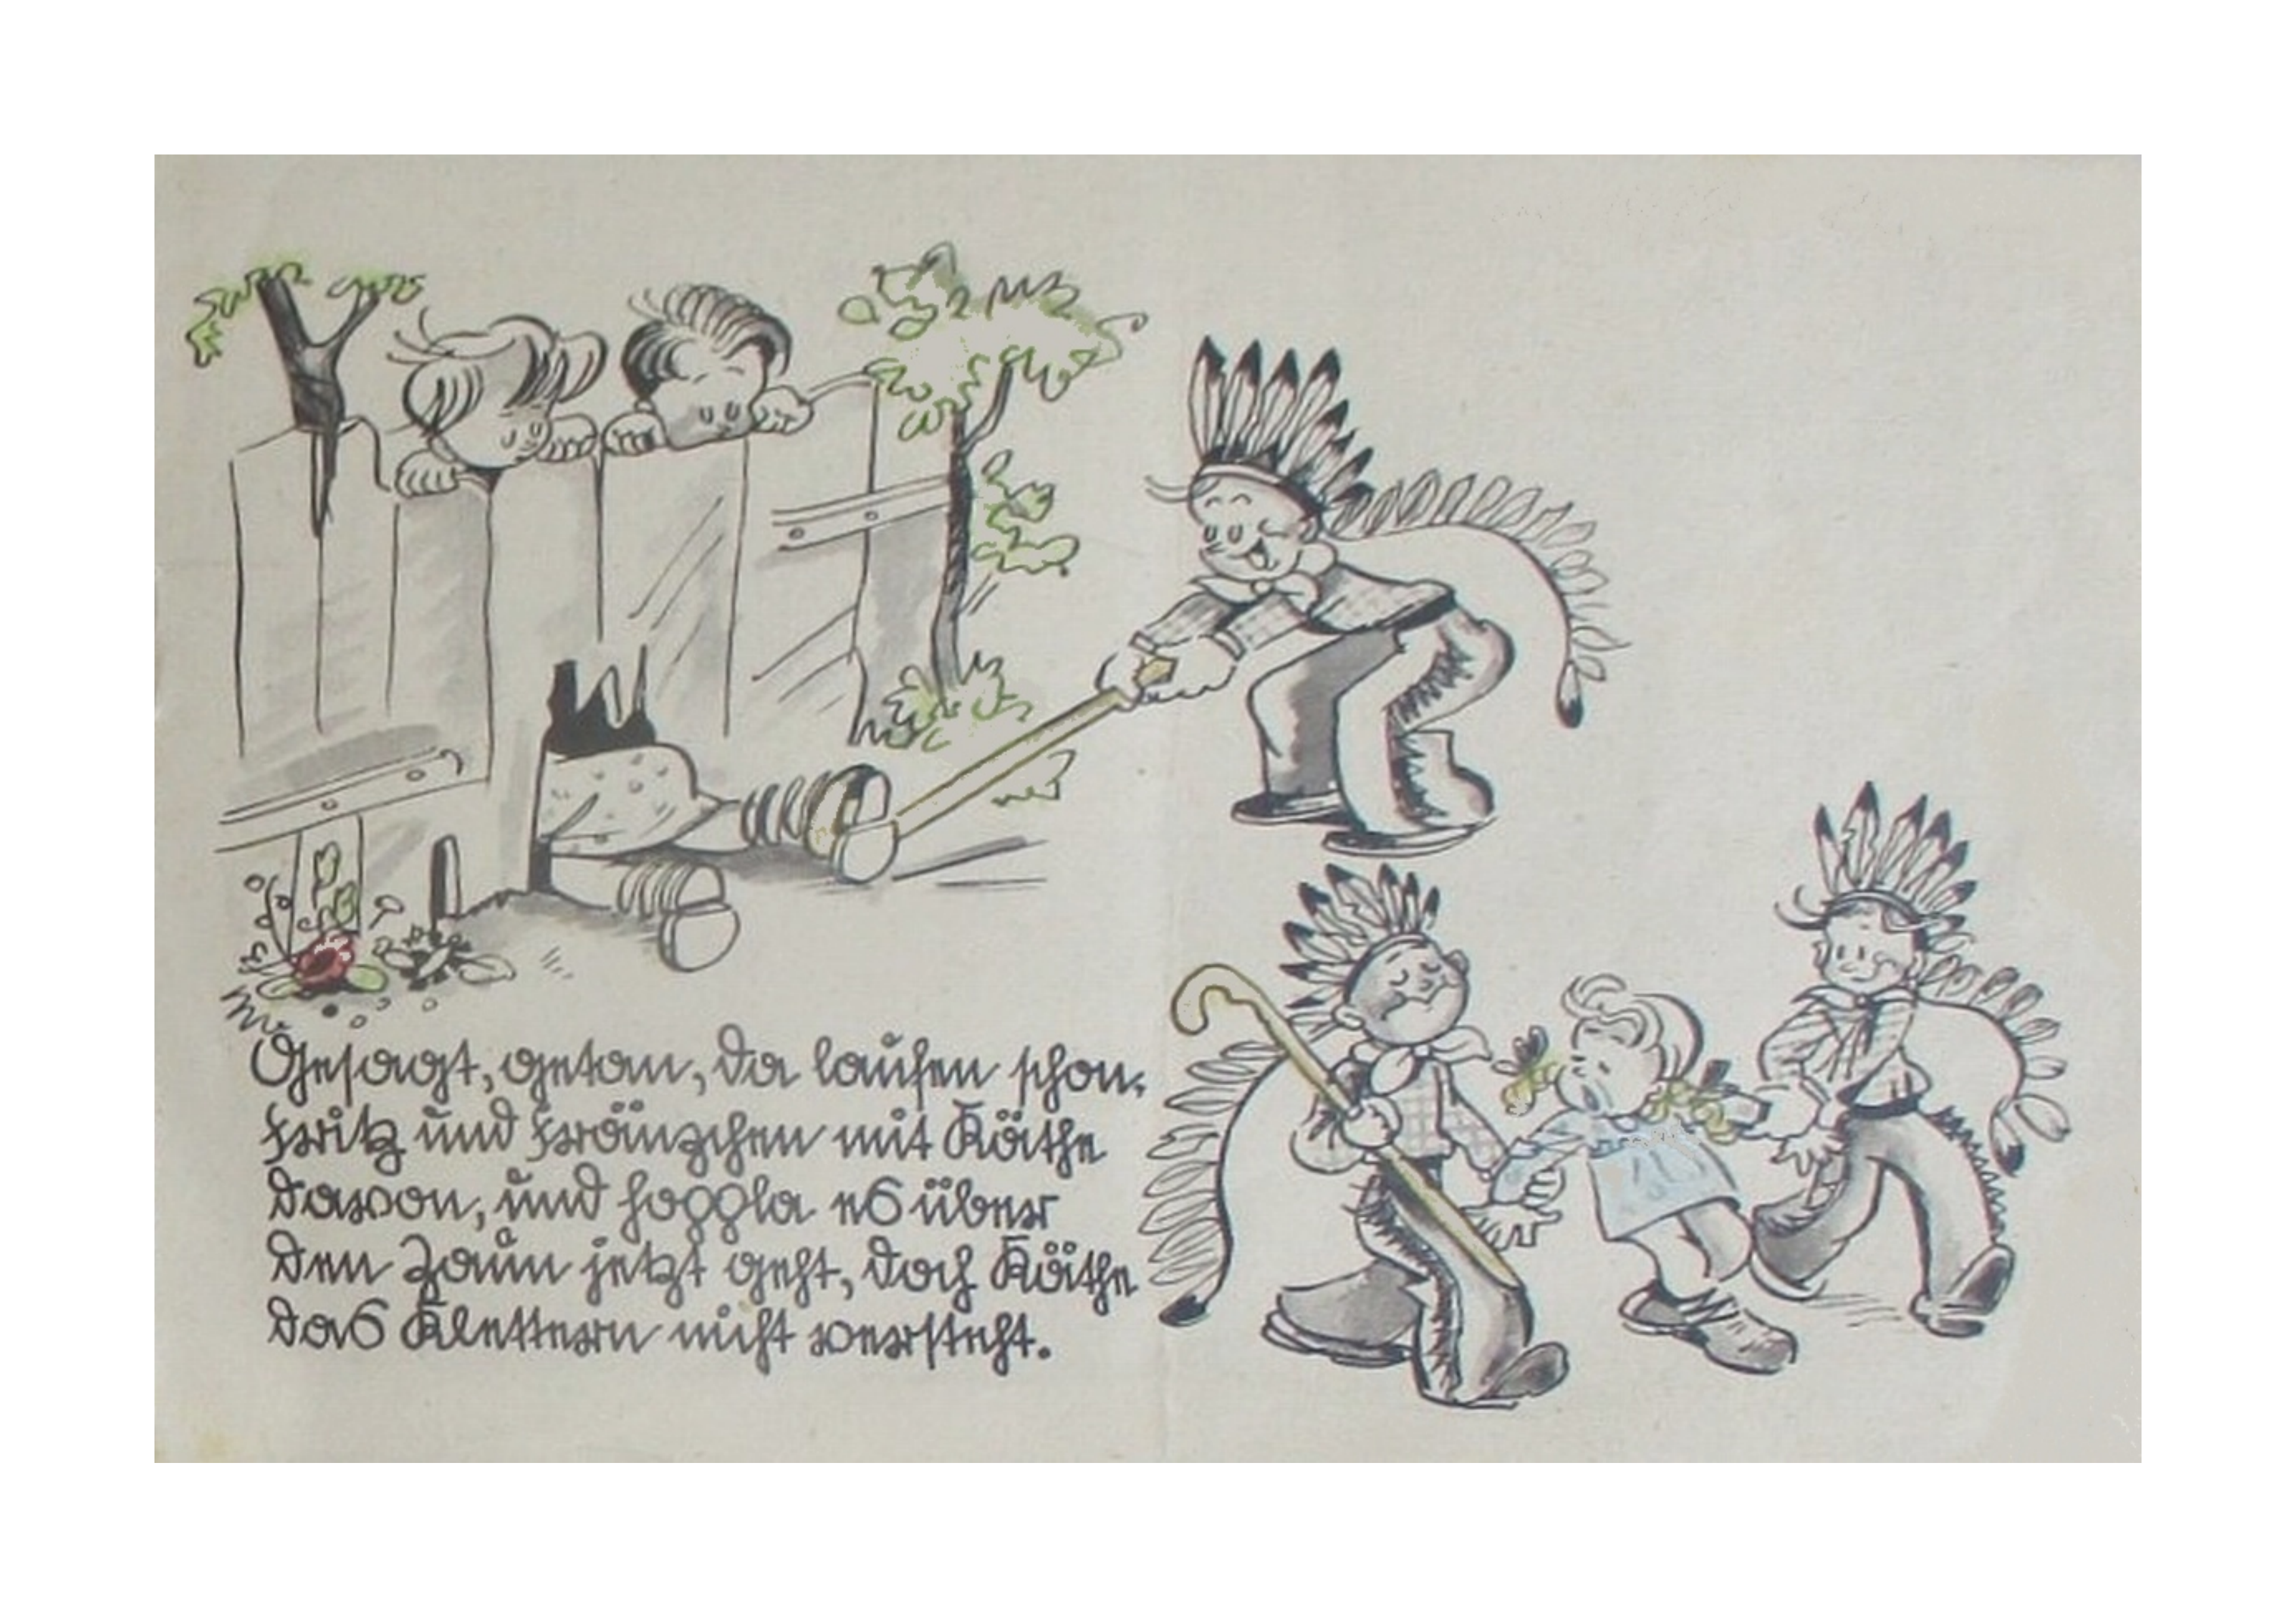 Gesagt, getan, da laufen schon,
Fritz und Fränzchen mit Käthe
davon, und hoppla es über
den Zaun jetzt geht, doch Käthe
das Klettern nicht versteht.